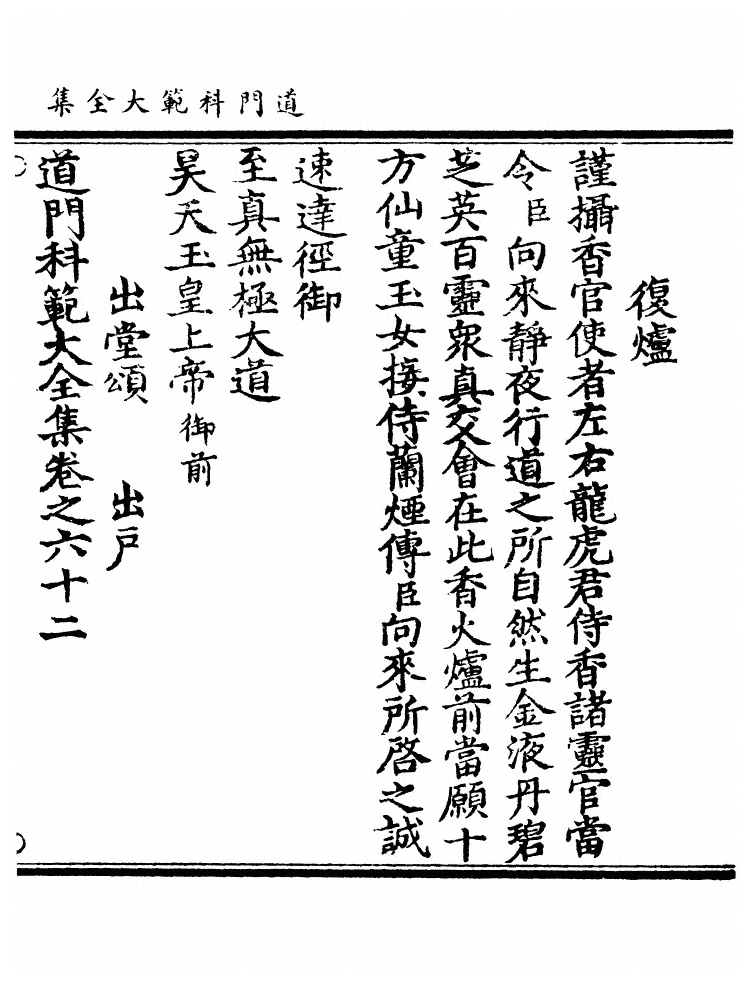 道門科範大全集
復爐
謹攝香官使者左右龍虎君侍香諸靈官當
令臣向來靜夜行道之所自然生金液丹碧
芝英百靈眾真交會在此香火爐前當願十
方仙童玉女接侍蘭煙傳臣向來所啓之誠
速達徑御
至真無極大道
昊天玉皇上帝御前
出堂頌 出戶
道門科範大全集卷之六十二